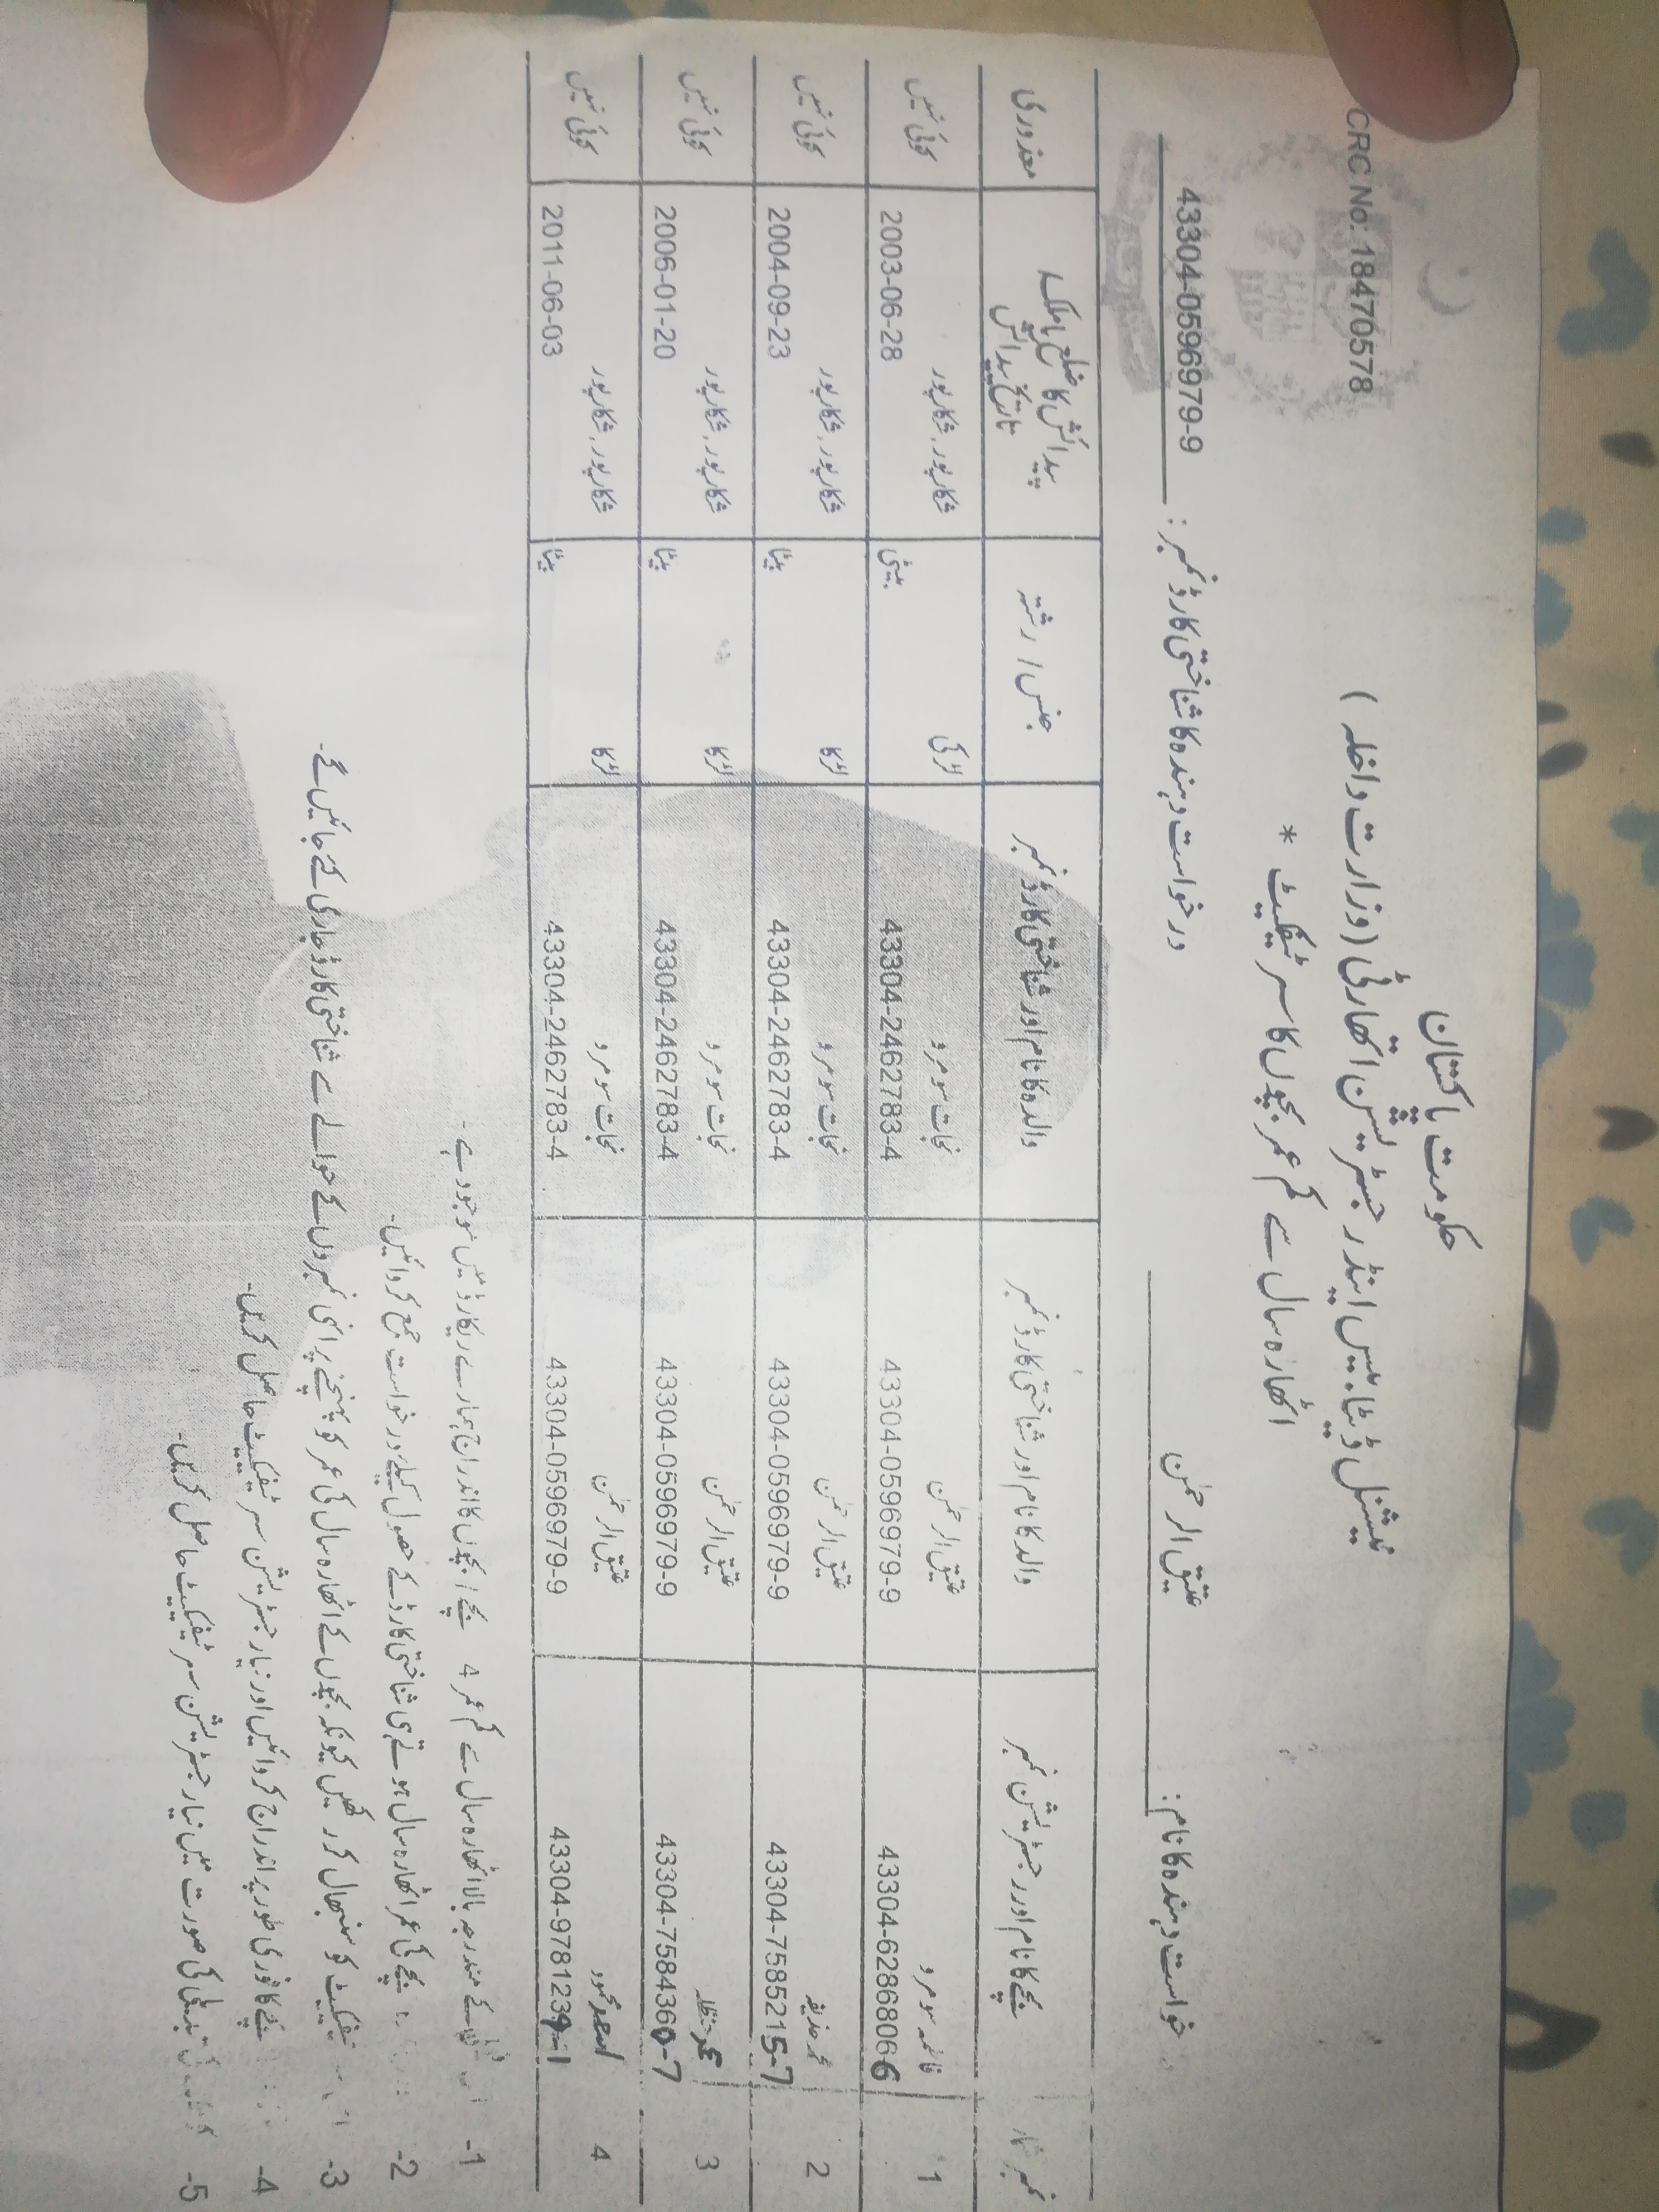 حکومت پاکستان
نیشنل ڈیٹا بیس اینڈ رجسٹریشن اتھارٹی (وزارت داخلہ)
CRC No: 18470578
اٹھارہ سال سے کم عمر بچوں کا سرٹیفکیٹ *
خواست دہندہ کا نام: عتیق الرحمٰن درخواست دہندہ کا شناختی کارڈ نمبر: 43304-0596979-9
نمبر شمار بچے کا نام اور رجسٹریشن نمبر والد کا نام اور شناختی کارڈ نمبر والدہ کا نام اور شناختی کارڈ نمبر جنس / رشتہ پیدائش کا ضلع یا ملک معذوری
تاریخ پیدائش
1 فاطمہ سومرو عتیق الرحمٰن نجات سومرو لڑکی شکارپور، شکارپور کوئی نہیں
43304-6286806 43304-0596979-9 43304-2462783-4 بیٹی 2003-06-28
2 محمد حذیفہ عتیق الرحمٰن نجات سومرو لڑکا شکارپور، شکارپور کوئی نہیں
43304-7585215-7 43304-0596979-9 43304-2462783-4 بیٹا 2004-09-23
3 محمد حنظلہ عتیق الرحمٰن نجات سومرو لڑکا شکارپور، شکارپور کوئی نہیں
43304-7584360-7 43304-0596979-9 43304-2462783-4 بیٹا 2006-01-20
4 اسعد محمود عتیق الرحمٰن نجات سومرو لڑکا شکارپور، شکارپور کوئی نہیں
43304-9781239-1 43304-0596979-9 43304-2462783-4 بیٹا 2011-06-03
1- کے مندرجہ بالا اٹھارہ سال سے کم عمر 4 بچے / بچوں کا اندراج ہمارے ریکارڈ میں موجود ہے۔
2- بچے کی عمر اٹھارہ سال ہوتے ہی شناختی کارڈ کے حصول کیلئے درخواست جمع کروائیں۔
3- سرٹیفکیٹ کو سنبھال کر رکھیں کیونکہ بچوں کے اٹھارہ سال کی عمر کو پہنچنے پر انہی نمبروں کے حوالے سے شناختی کارڈ جاری کئے جائیں گے۔
4- بچے کا فوری طور پر اندراج کروائیں اور نیا رجسٹریشن سرٹیفکیٹ حاصل کریں۔
5- کی تبدیلی کی صورت میں نیا رجسٹریشن سرٹیفکیٹ حاصل کریں۔